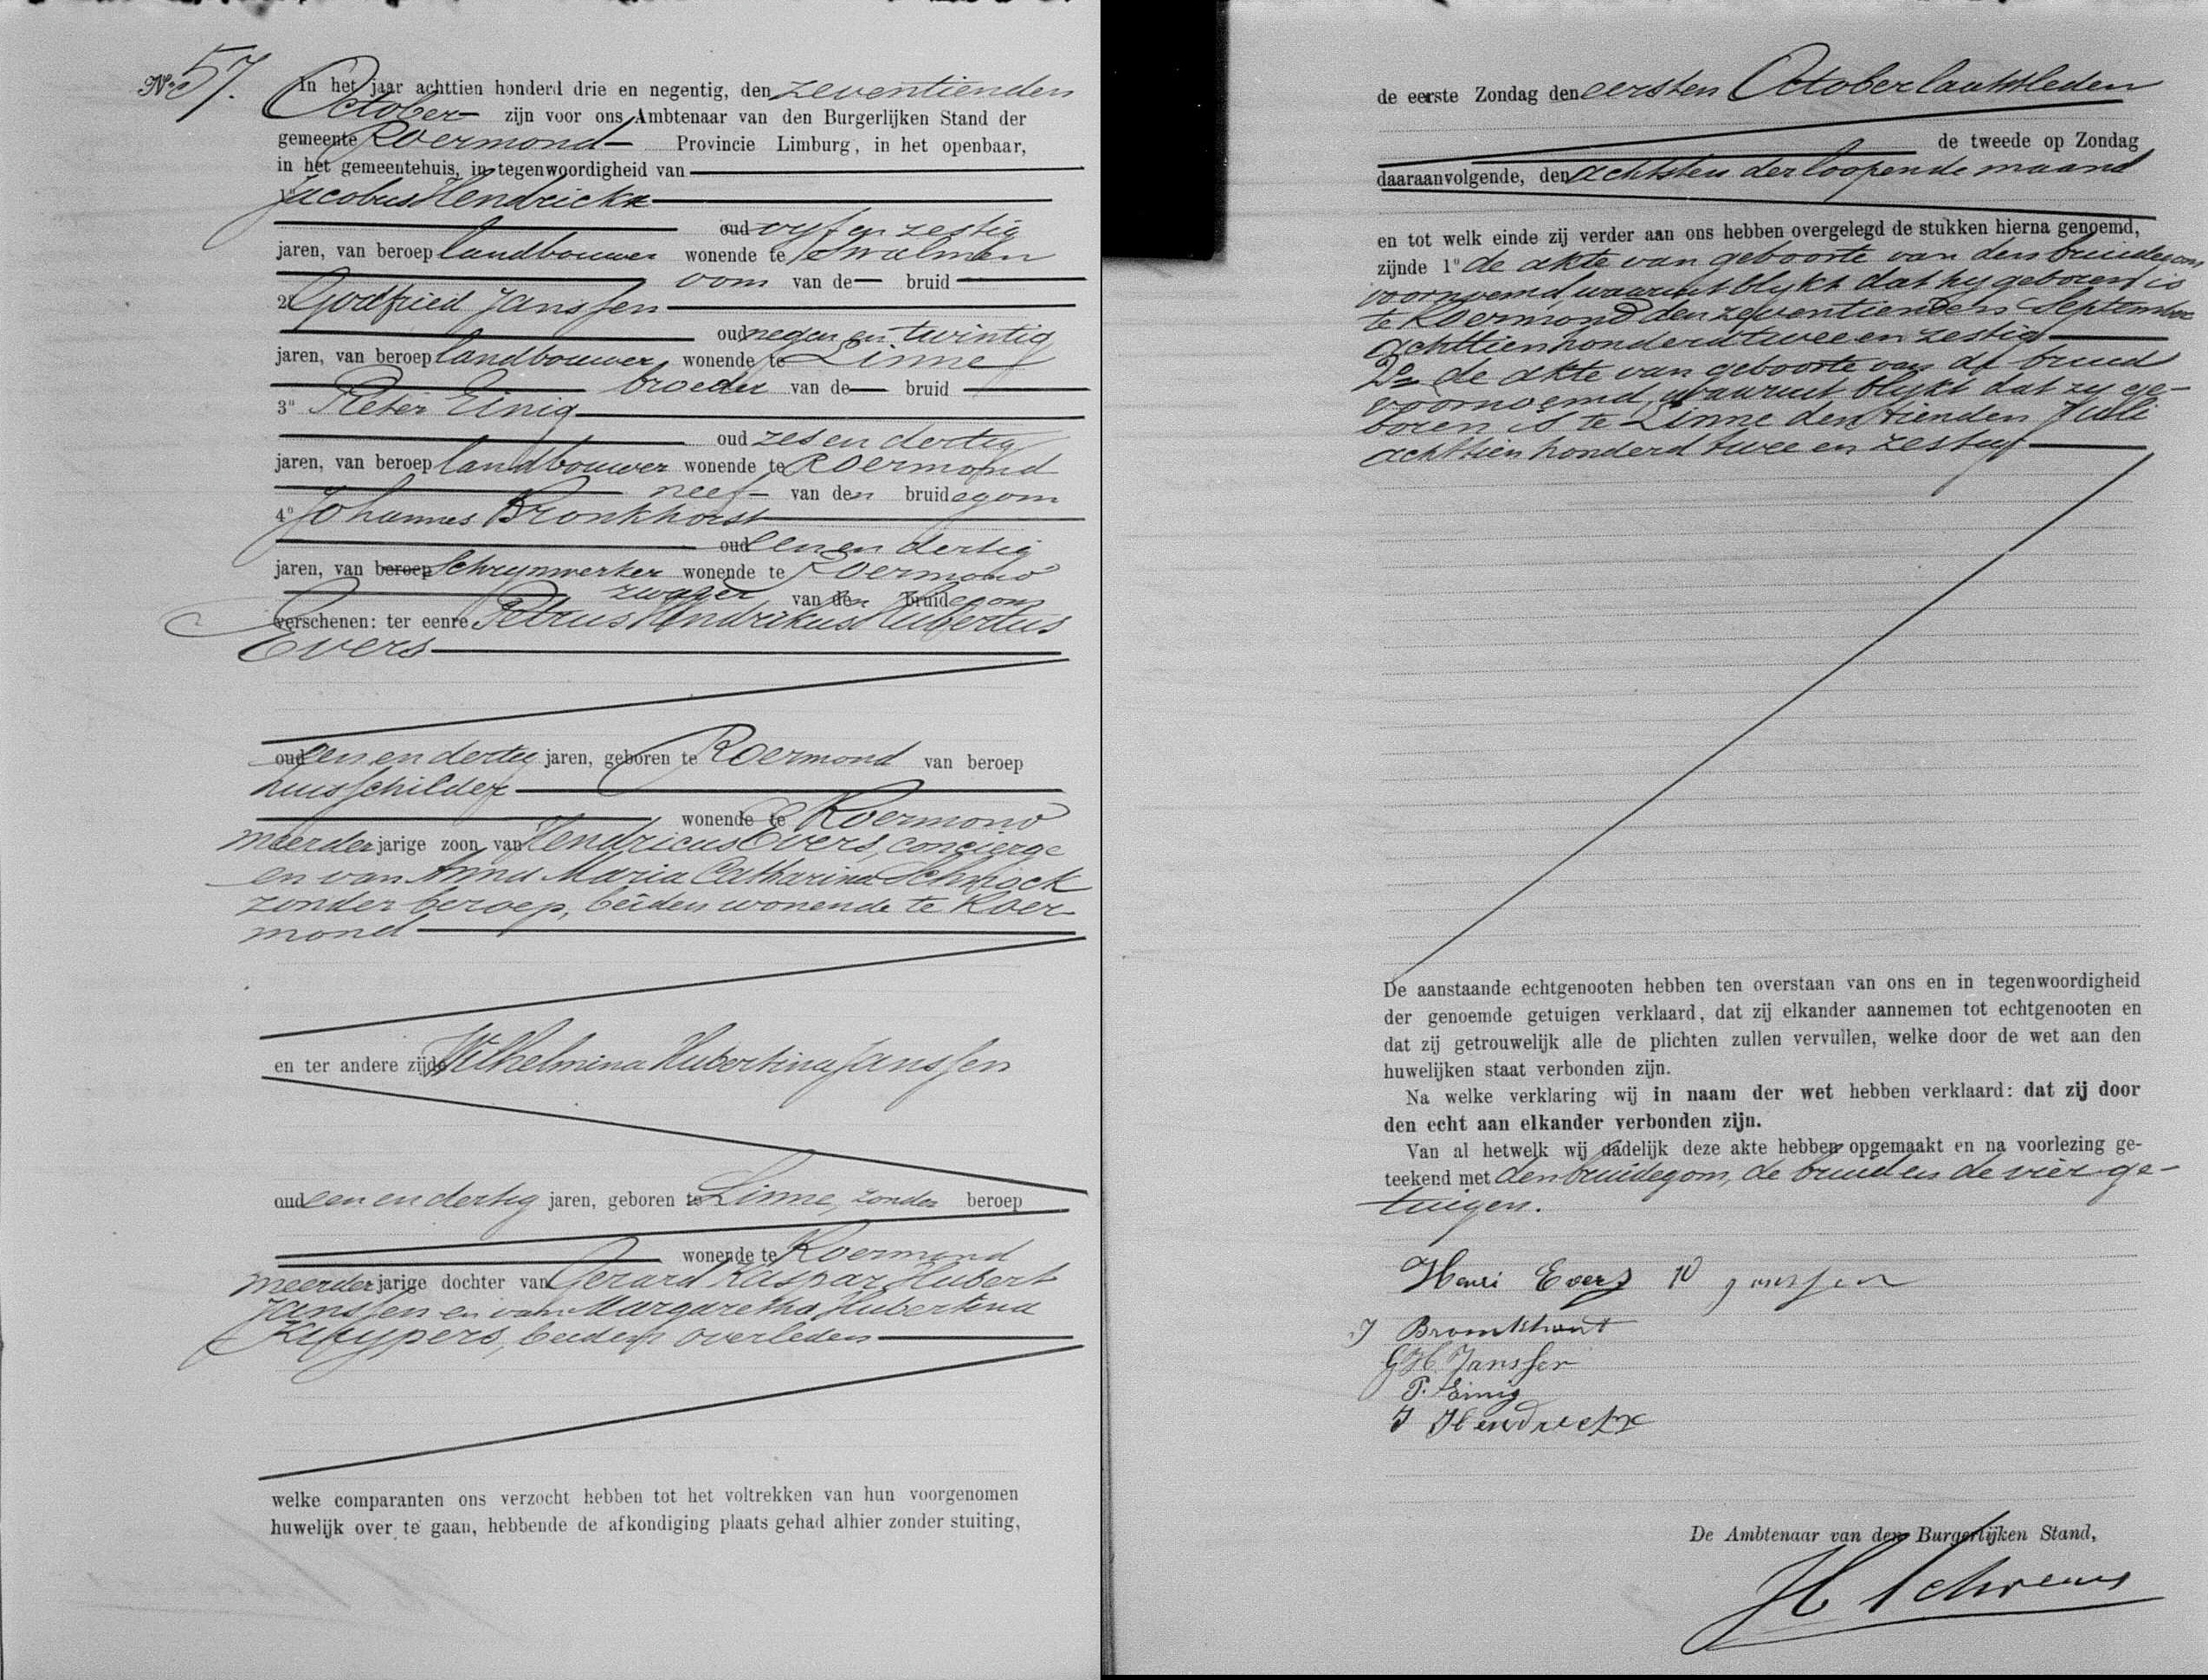 No 57.
In het jaar achttien honderd drie en negentig, den zeventienden
October zijn voor ons Ambtenaar van den Burgerlijken Stand der
gemeente Roermond Provincie Limburg, in het openbaar,
in het gemeentehuis, in tegenwoordigheid van
1º Jacobus Hendrickx
oud vyf en zestig
jaren, van beroep landbouwer wonende te Swalmen
oom van de bruid
2º Godfried Janssen
oud negen en twintig
jaren, van beroep landbouwer wonende te Linne
broeder van de bruid
3º Pieter Einig
oud zes en dertig
jaren, van beroep landbouwer wonende te Roermond
neef van den bruidegom
4º Johannes Bronkhorst
oud een en dertig
jaren, van beroep Schrynwerker wonende te Roermond
zwager van den bruidegom
verschenen: ter eenre Petrus Hendrikus Hubertus
Evers
oud een en dertig jaren, geboren te Roermond van beroep
huisschilder
wonende te Roermond
meerderjarige zoon van Hendricus Evers, concierge
en van Anna Maria Catharina
zonder beroep, beiden wonende te Roer-
mond
en ter andere zijde Wilhelmina Hubertina Janssen
oud een en dertig jaren, geboren te Linne, zonder beroep
wonende te Roermond
meerderjarige dochter van Gerard Kaspar Hubert
Janssen en van Margaretha Hubertina
Kuypers, beiden overleden
welke comparanten ons verzocht hebben tot het voltrekken van hun voorgenomen
huwelijk over te gaan, hebbende de afkondiging plaats gehad alhier zonder stuiting,
de eerste Zondag den eersten October laatstleden
de tweede op Zondag
daaraanvolgende, den achtsten der loopende maand
en tot welk einde zij verder aan ons hebben overgelegd de stukken hierna genoemd,
zijnde 1º de akte van geboorte van den bruidegom
voornoemd waaruit blykt dat hy geboren is
te Roermond den zeventienden September
achttienhonderd twee en zestig
2º de akte van geboorte van de bruid
voornoemd, waaruit blykt dat zy ge-
boren is te Linne den tienden Juli
achttien honderd twee en zestig
De aanstaande echtgenooten hebben ten overstaan van ons en in tegenwoordigheid
der genoemde getuigen verklaard, dat zij elkander aannemen tot echtgenooten en
dat zij getrouwelijk alle de plichten zullen vervullen, welke door de wet aan den
huwelijken staat verbonden zijn.
Na welke verklaring wij in naam der wet hebben verklaard: dat zij door
den echt aan elkander verbonden zijn.
Van al hetwelk wij dadelijk deze akte hebben opgemaakt en na voorlezing ge-
teekend met den bruidegom, de bruid en de vier ge-
tuigen.
Henri Evers W janssen
J Bronkhorst
G H Janssen
P. Einig
J Hendrickx
De Ambtenaar van den Burgerlijken Stand,